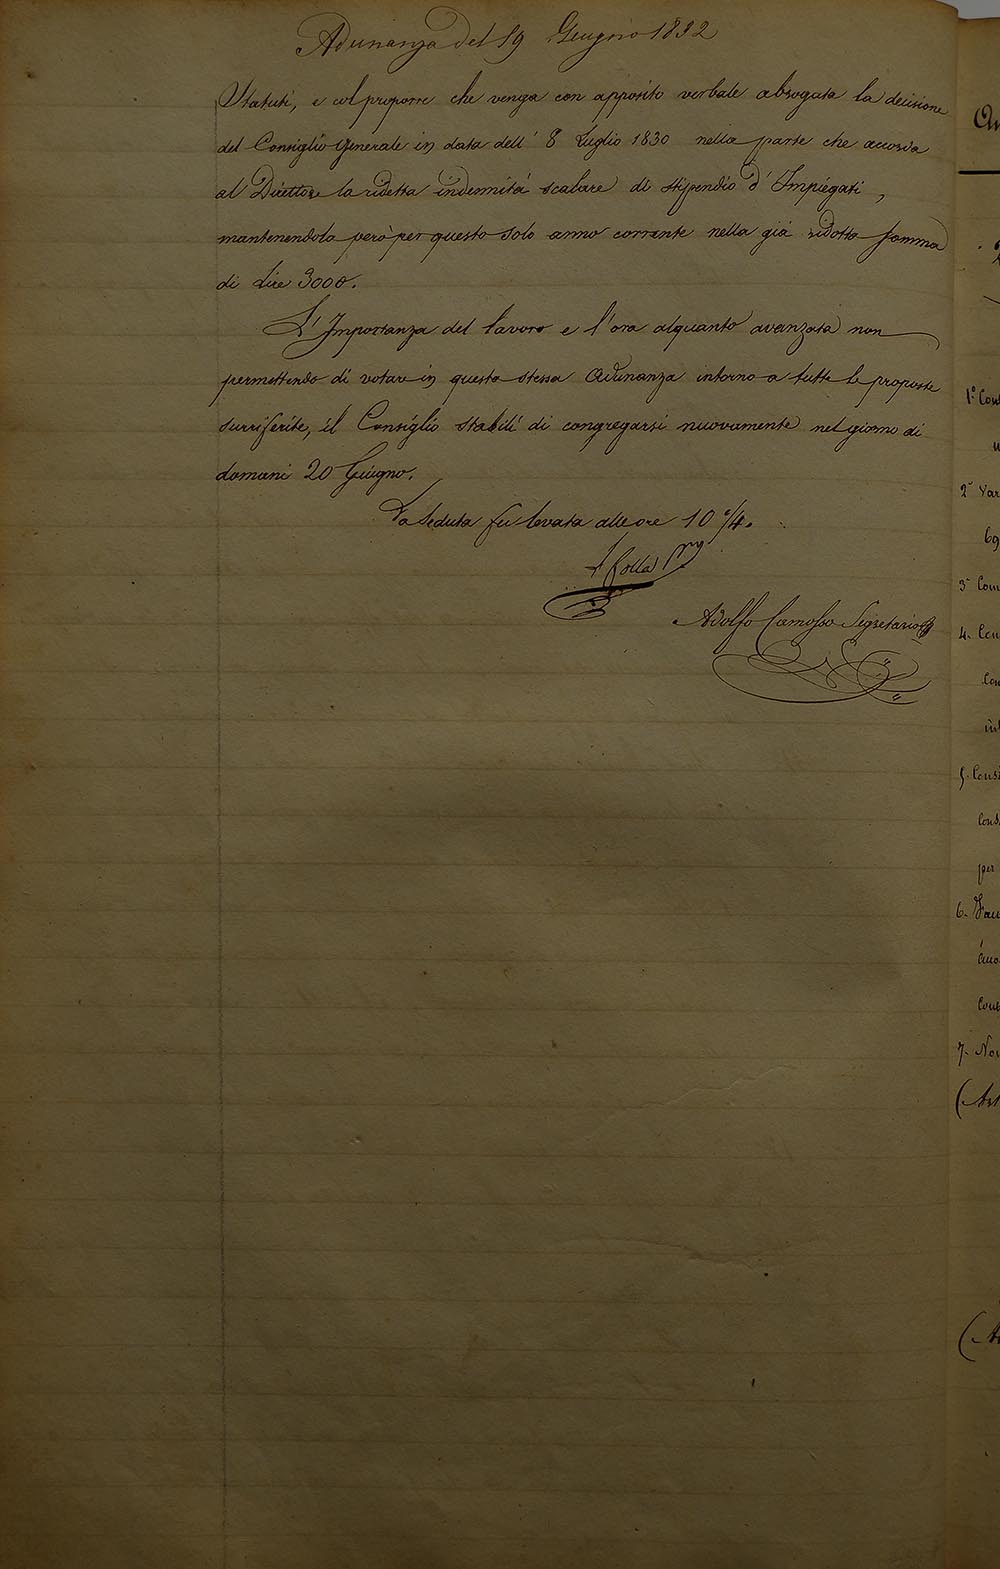 Adunanza del 19 Giugno 1832
Statuti, e col proporre che venga con apposito verbale abrogata la decisione
del Consiglio Generale in data dell' 8 Luglio 1830 nella parte che accorda
al Direttore la ridetta indennità scalare di stipendio d' Impiegati,
mantenendola però per questo solo anno corrente nella già ridotta somma
di Lire 3000.
L'Importanza del lavoro e l'ora alquanto avanzata non
permettendo di votare in questa stessa Adunanza intorno a tutte le proposte
surriferite, il Consiglio stabilì di congregarsi nuovamente nel giorno di
domani 20 Giugno.
La Seduta fu levata alle ore 10
Adolfo Camosso Segretario
1º
2º Var
3º Com
4.
5. Cons
cons.
per
6.
7.